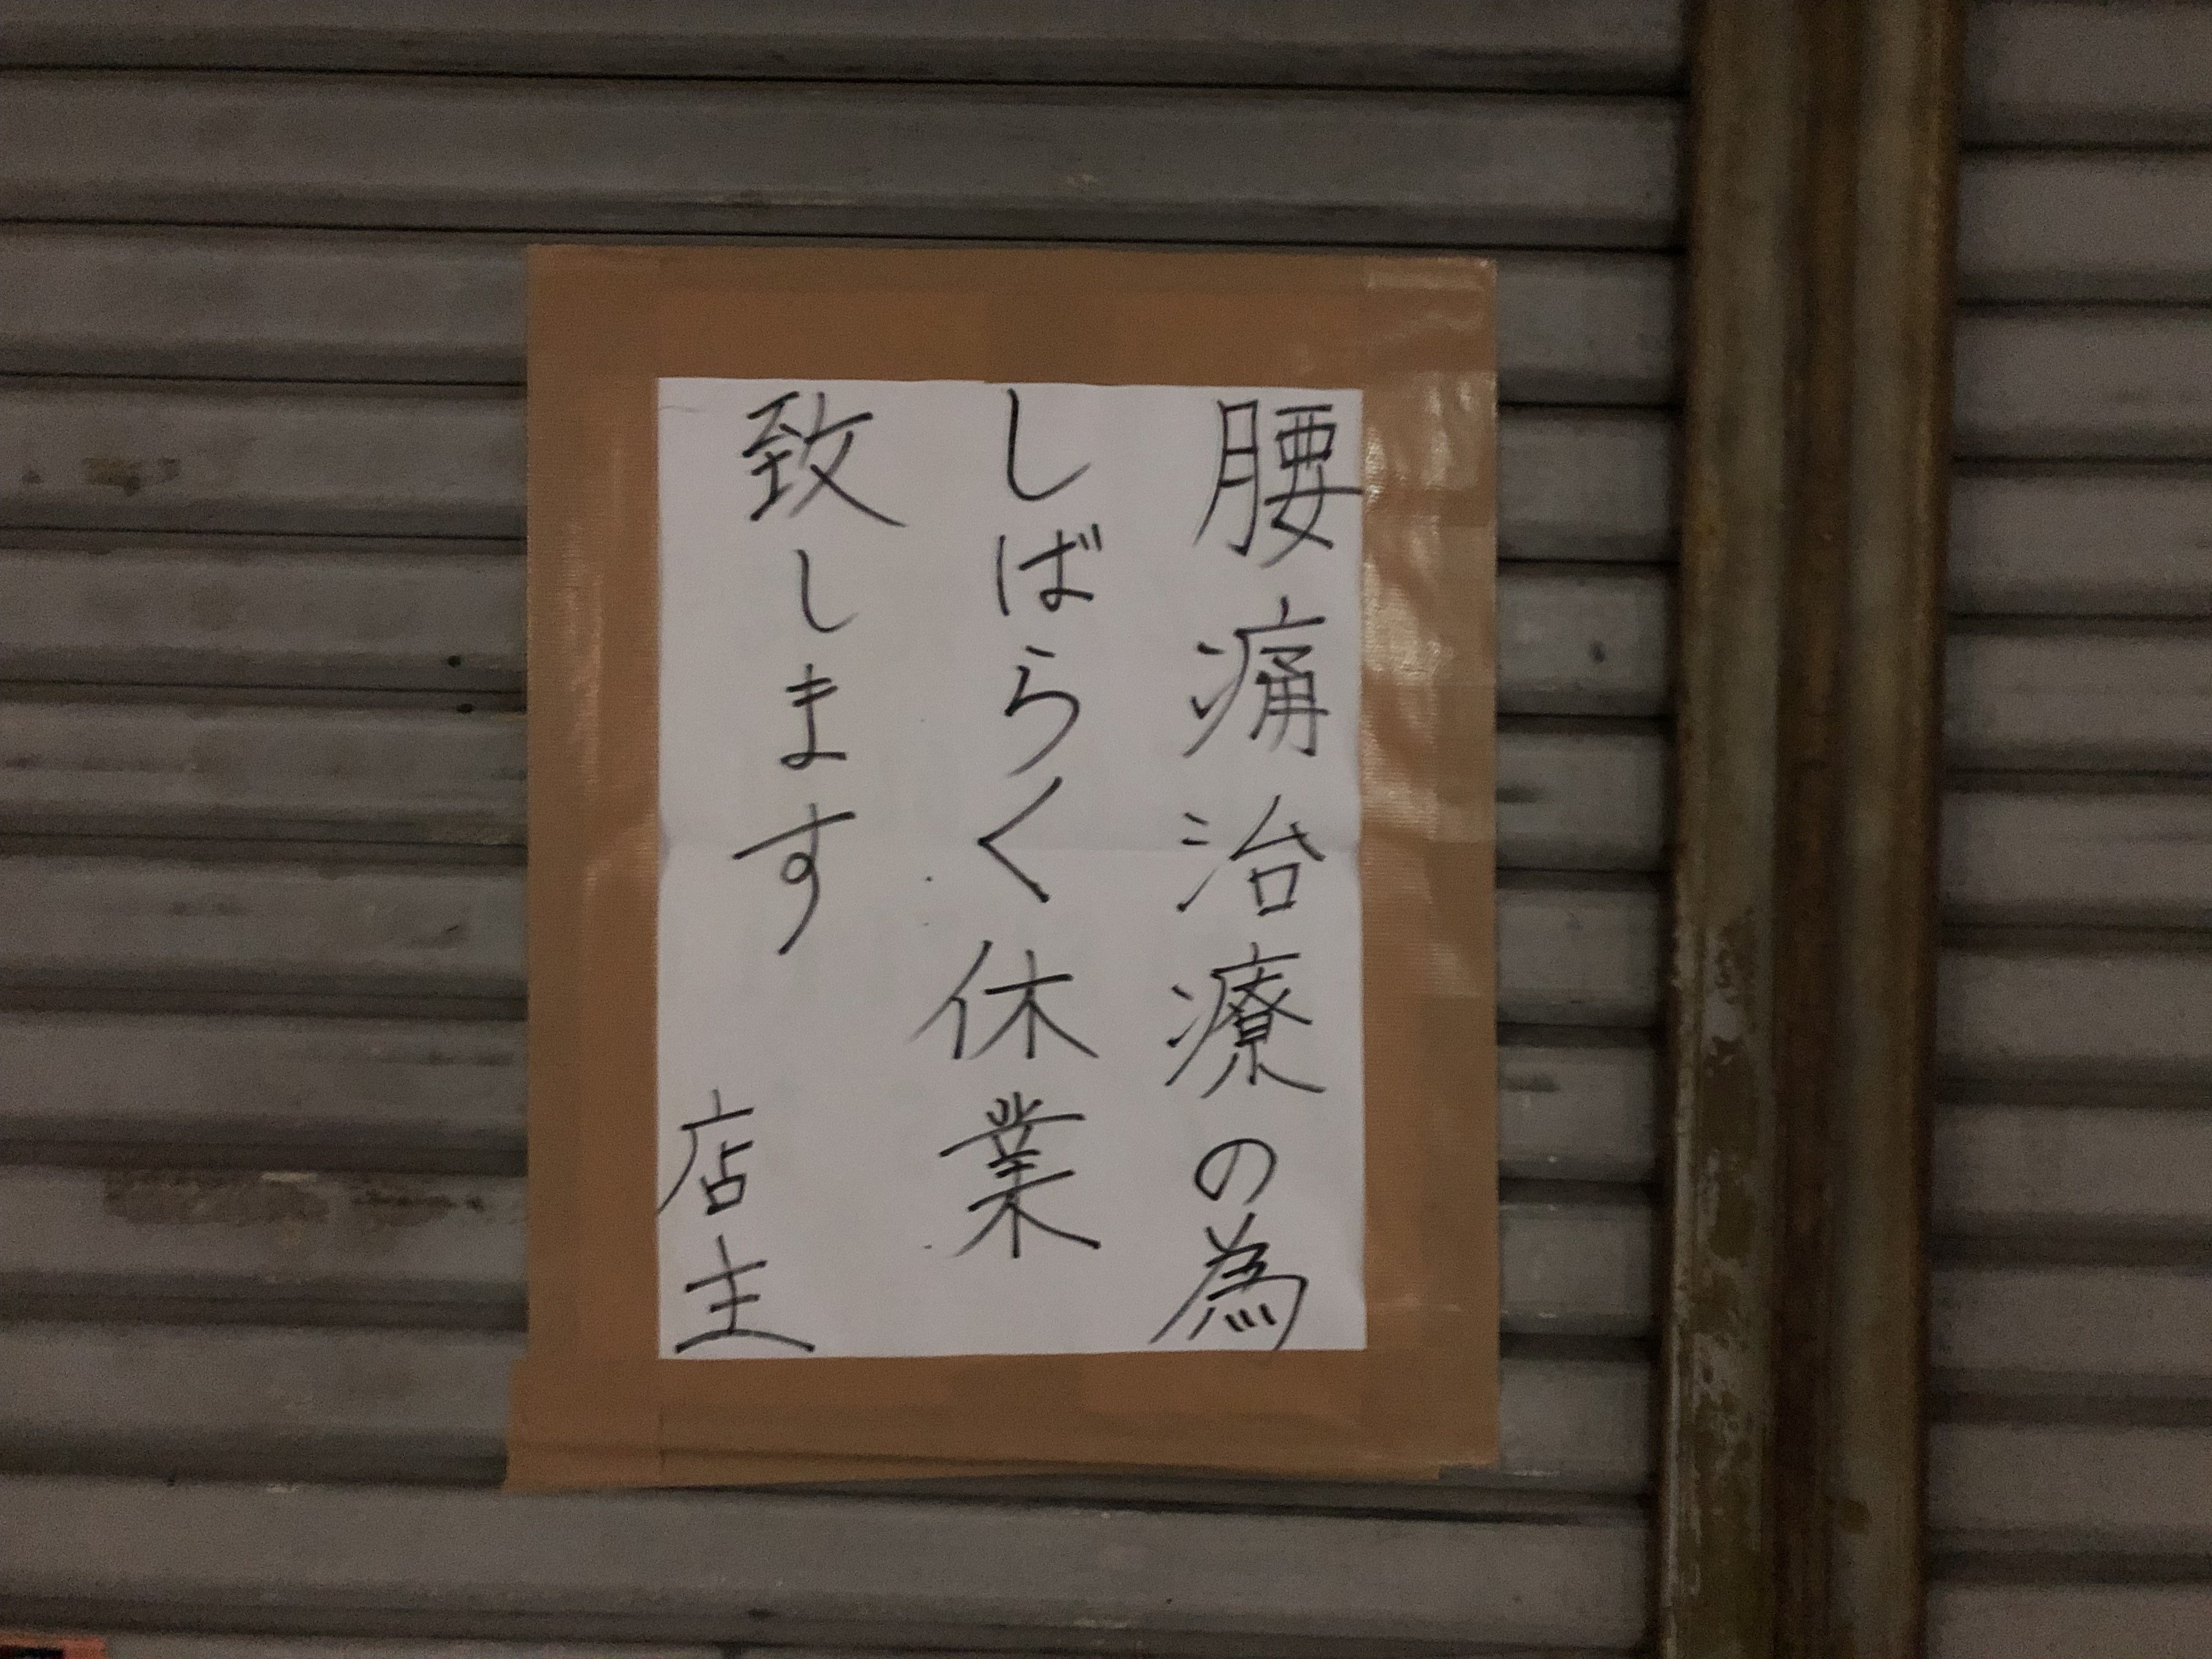 腰痛治療の為
しばらく休業
致します
店主